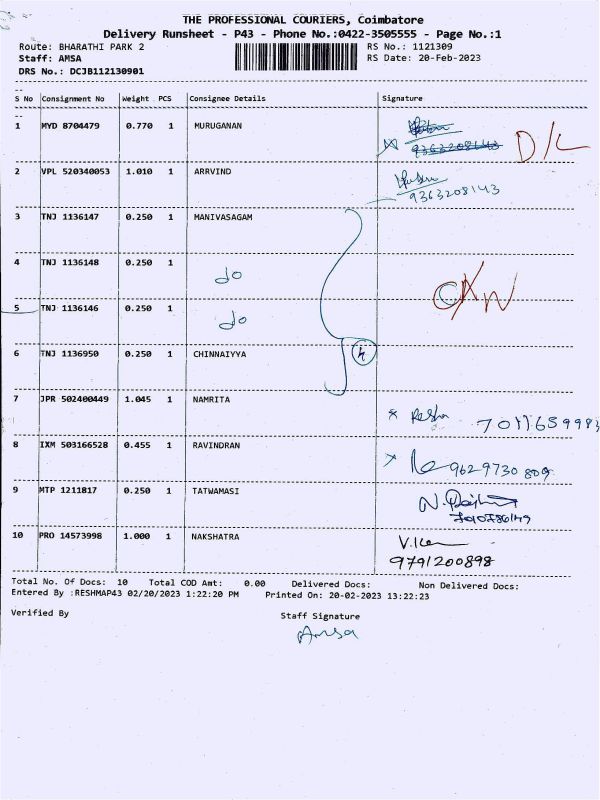 THE PROFESSIONAL COURIERS, Coimbatore
Delivery Runsheet - P43 - Phone No.:0422-3505555 - Page No.:1
Route: BHARATHI PARK 2 RS No.: 1121309
Staff: AMSA RS Date: 20-Feb-2023
DRS No.: DCJB112130901
S No Consignment No Weight PCS Consignee Details Signature
1 MYD 8704479 0.770 1 MURUGANAN
9363208143 D/L
2 VPL 520340053 1.010 1 ARRVIND
9363208143
3 TNJ 1136147 0.250 1 MANIVASAGAM
4 TNJ 1136148 0.250 1 do
5 TNJ 1136146 0.250 1 do
6 TNJ 1136950 0.250 1 CHINNAIYYA 4
7 JPR 502400449 1.045 1 NAMRITA
x Resha 7011659983
8 IXM 503166528 0.455 1 RAVINDRAN
9629730809
9 MTP 1211817 0.250 1 TATWAMASI
10 PRO 14573998 1.000 1 NAKSHATRA
9791200898
Total No. Of Docs: 10 Total COD Amt: 0.00 Delivered Docs: Non Delivered Docs:
Entered By :RESHMAP43 02/20/2023 1:22:20 PM Printed On: 20-02-2023 13:22:23
Verified By Staff Signature
Amsa